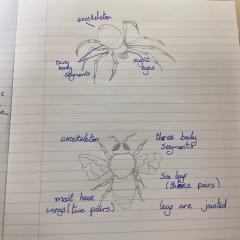 exoskeleton
two
body
segments
eight
eyes
exoskeleton
three body
segments
Six legs
(three pairs)
most have
wings (two pairs)
legs are jointed